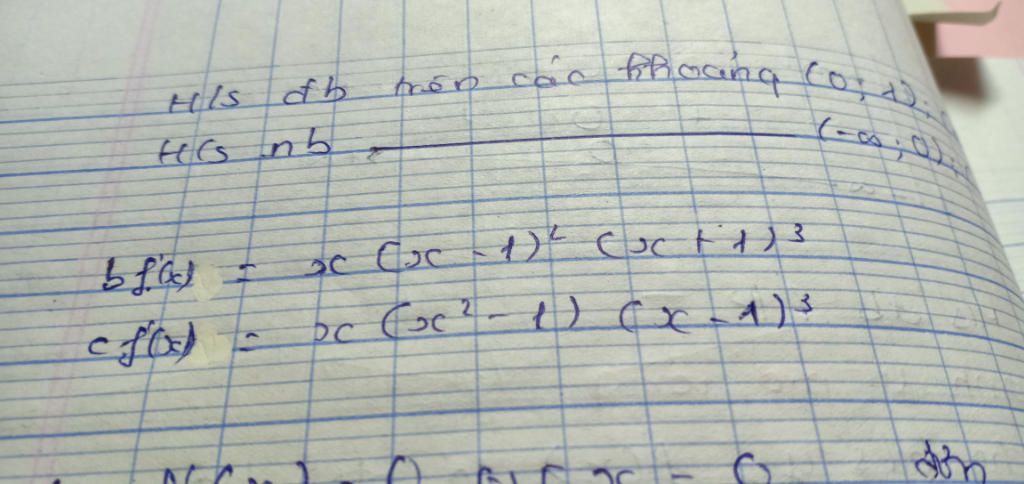 H/s đb trên các khoảng (0; 1);
H/s nb ———— (-∞; 0);
b f'(x) = x (x - 1)² (x + 1)³
c f'(x) = x (x² - 1) (x - 1)³
x = 0 đơn